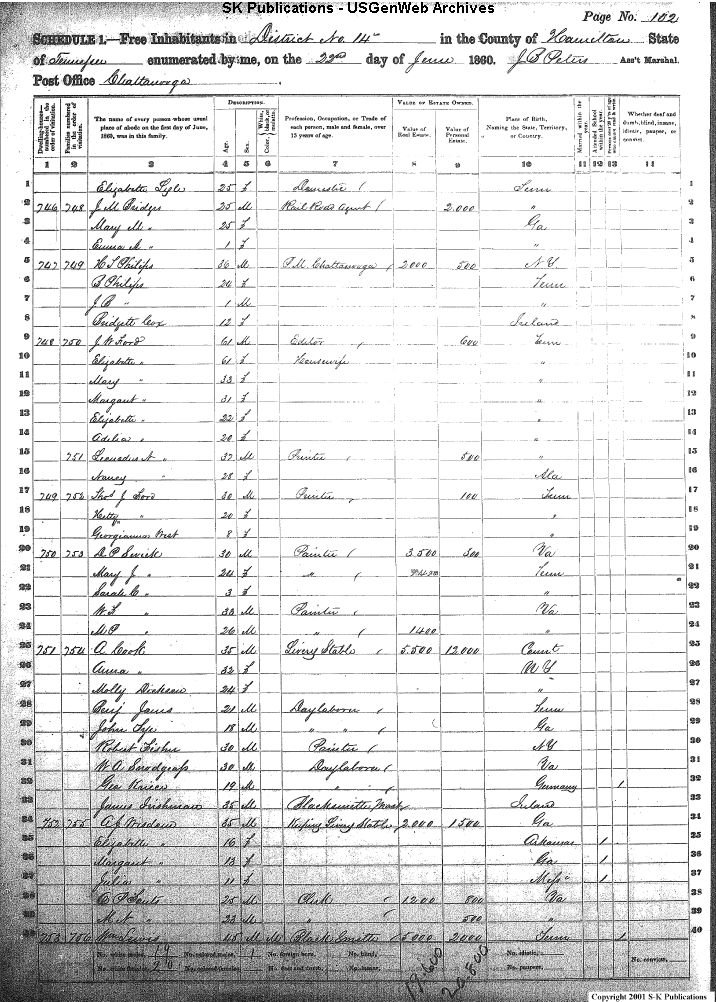 SK Publications - USGenWeb Archives
Page No. 102
SCHEDULE 1.—Free Inhabitants in District No. 14 in the County of Hamilton State
of Tennessee enumerated by me, on the 22nd day of June 1860. J B Peters Ass't Marshal.
Post Office Chattanooga
Dwelling-houses—numbered in the order of visitation.
Families numbered in the order of visitation.
The name of every person whose usual place of abode on the first day of June, 1860, was in this family.
DESCRIPTION.
Age.
Sex.
Color, White, black, or mulatto.
Profession, Occupation, or Trade of each person, male and female, over 15 years of age.
VALUE OF ESTATE OWNED.
Value of Real Estate.
Value of Personal Estate.
Place of Birth, Naming the State, Territory, or Country.
Married within the year.
Attended School within the year.
Whether deaf and dumb, blind, insane, idiotic, pauper, or convict.
1 2 3 4 5 6 7 8 9 10 11 12 13 14
1 Elizabeth Lyle 25 f Domestic Tenn 1
2 746 748 J M Bridges 25 M Rail Road Agent 2.000 " 2
3 Mary M " 25 f Ga 3
4 Emma A " 1 f " 4
5 747 749 H S Philips 36 M P.M. Chattanooga 2000 500 N Y 5
6 B Philips 24 f Tenn 6
7 J B " 1 M " 7
8 Bridgett Cox 12 f Ireland 8
9 748 750 J W Ford 61 M Editor 600 Tenn 9
10 Elizabeth " 61 f Housewife " 10
11 Mary " 33 f " 11
12 Margaret " 31 f " 12
13 Elizabeth " 22 f " 13
14 Adelia " 20 f " 14
15 751 N " 37 M Printer 500 " 15
16 Nancy " 28 f Ala 16
17 749 752 Thos J Ford 30 M Printer 100 Tenn 17
18 Hetty " 20 f " 18
19 Georgianna West 8 f " 19
20 750 753 D P 30 M Painter 3.500 500 Va 20
21 Mary J " 24 f " Tenn 21
22 Sarah C " 3 f " 22
23 W L " 30 M Painter Va 23
24 M P " 26 M " 1400 " 24
25 751 754 A Cook 35 M Livery Stable 5.500 12000 Connt 25
26 Anna " 32 f N Y 26
27 Molly 24 f " 27
28 Benj Janis 21 M Daylaborer Tenn 28
29 John 18 M " " Ga 29
30 Robert Fisher 30 M Painter NY 30
31 W A Snodgrass 30 M Daylaborer Va 31
32 Geo 19 M " Germany 1 32
33 James Irishman 35 M Blacksmith, Mast Ireland 33
34 752 755 A J Wisdom 35 M Keeping Livery Stable 2.000 1500 Ga 34
35 Elizabeth " 16 f Arkansas 1 35
36 Margaret " 13 f Ga 1 36
37 Julia " 11 f Miss 1 37
38 C P 25 M Clerk 1200 800 Va 38
39 M A " 23 M " 500 " 39
40 753 756 Wm Lewis 45 M M Black Smith 5000 2000 Tenn 1 40
No. white males, 19 No. colored males, 1 No. foreign born, No. blind, No. idiotic,
No. white females, 20 No. colored females, No. deaf and dumb, No. insane, No. paupers, No. convicts,
19600 20.800
Copyright 2001 S-K Publications